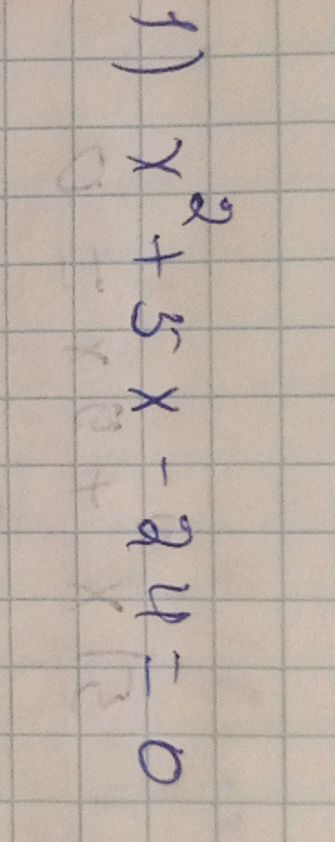 1) x² + 5x - 24 = 0